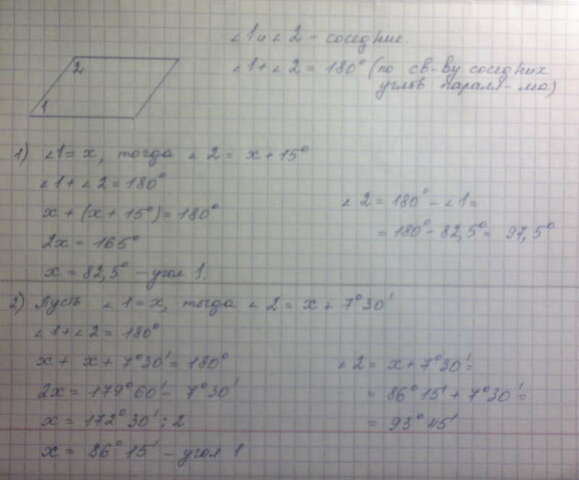 ∠1 и ∠2 – соседние.
∠1 + ∠2 = 180° (по св-ву соседних
углов паралл-ма)
2
1
1) ∠1 = x, тогда ∠2 = x + 15°
∠1 + ∠2 = 180°
x + (x + 15°) = 180°
2x = 165°
x = 82,5° – угол 1.
∠2 = 180° – ∠1 =
= 180° – 82,5° = 97,5°
2) Пусть ∠1 = x, тогда ∠2 = x + 7°30'
∠1 + ∠2 = 180°
x + x + 7°30' = 180°
2x = 179°60' – 7°30'
x = 172°30' : 2
x = 86°15' – угол 1
∠2 = x + 7°30' =
= 86°15' + 7°30' =
= 93°45'